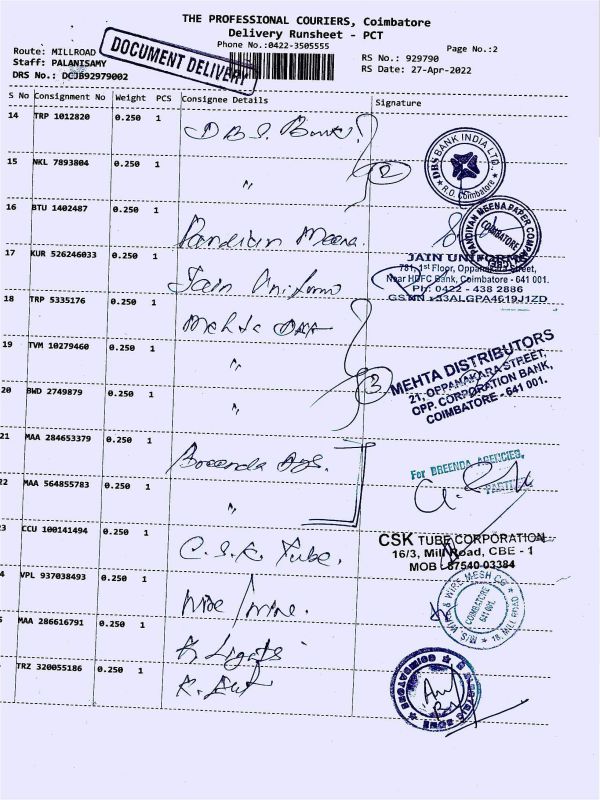 THE PROFESSIONAL COURIERS, Coimbatore
Delivery Runsheet - PCT
Phone No.:0422-3505555
Page No.:2
Route: MILLROAD
Staff: PALANISAMY
DRS No.: DCJB92979002
DOCUMENT DELIVERY
RS No.: 929790
RS Date: 27-Apr-2022
S No Consignment No Weight PCS Consignee Details Signature
14 TRP 1012820 0.250 1 D B S. Bank
DBS BANK INDIA LTD. * R.O. Coimbatore *
15 NKL 7893804 0.250 1 "
2
16 BTU 1402487 0.250 1 Pandian Meena.
PANDIYAN MEENA PAPER COMPANY COIMBATORE
17 KUR 526246033 0.250 1 Jain Uniform
JAIN UNIFORMS
781, 1st Floor, Oppanakara Street,
Near HDFC Bank, Coimbatore - 641 001.
Ph: 0422 - 438 2886
GSTIN : 33ALGPA4619J1ZD
18 TRP 5335176 0.250 1 Mehta
19 TVM 10279460 0.250 1 "
3
MEHTA DISTRIBUTORS
21, OPPANAKARA STREET,
OPP. CORPORATION BANK,
COIMBATORE - 641 001.
20 BWD 2749879 0.250 1 "
21 MAA 284653379 0.250 1 Breenda Ags.
For BREENDA AGENCIES,
PARTNER
22 MAA 564855783 0.250 1 "
3 CCU 100141494 0.250 1 C. S. K. Tube.
CSK TUBE CORPORATION
16/3, Mill Road, CBE - 1
MOB : 87540 03384
4 VPL 937038493 0.250 1 Wire
M/S. WIRE & WIRE MESH CO * 18, MILL ROAD *
COIMBATORE
641 001.
5 MAA 286616791 0.250 1 K Lights
TRZ 320055186 0.250 1
ELECTRIC ZONE * COIMBATORE *